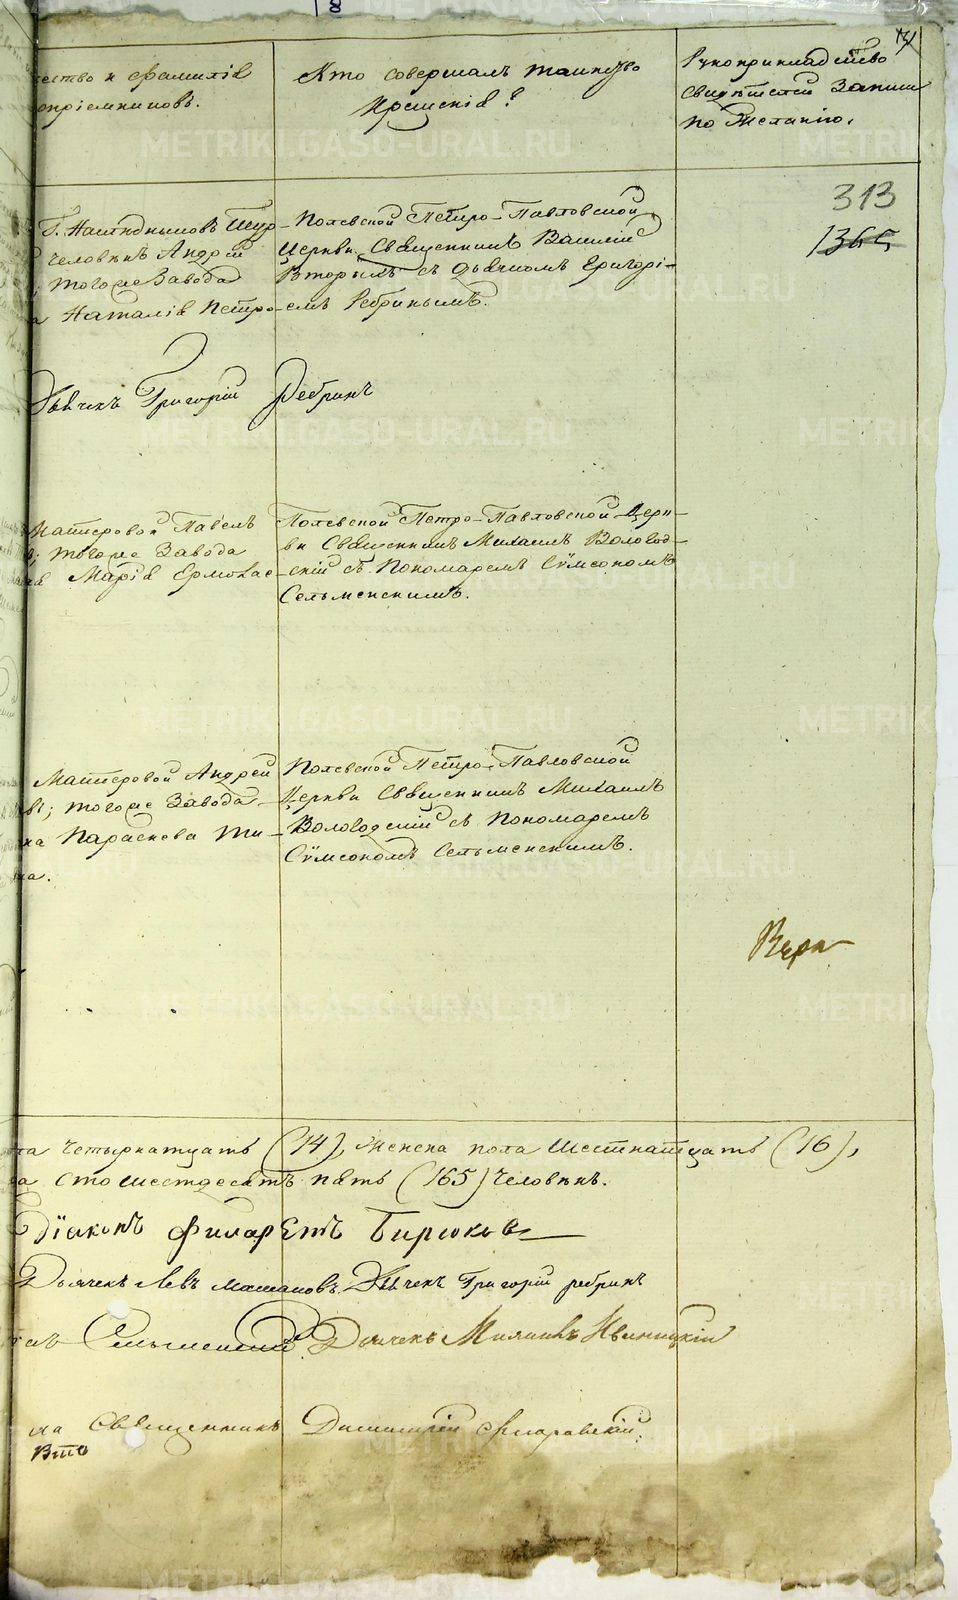 чество и фамилія
опріемниковъ.
Кто совершалъ таинство
крещенія?
Рукоприкладство
свидѣтелей записи
по желанію.
313
1365
Г. Наслѣдниковъ
человѣкъ Андрей
тогоже Завода
Наталія Петро-
Полевской Петро-Павловской
Церкви Священникъ Василій
Вторыхъ съ дьячкомъ Григорі-
емъ Ребринымъ.
Дьячекъ Григорій Ребринъ
Мастеровой Павелъ
тогоже Завода
Марія Ермолае-
Полевской Петро-Павловской Церк-
ви Священникъ Михаилъ Вологод-
скій съ Пономаремъ Сѵмеономъ
Сельменскимъ.
Мастеровой Андрей
въ; тогоже Завода
на Параскева Ти-
на.
Полевской Петро-Павловской
Церкви Священникъ Михаилъ
Вологодскій съ Пономаремъ
Сѵмеономъ Сельменскимъ.
ла четырнатцать (14), женска пола шестнатцать (16),
а сто шестдесятъ пять (165) человѣкъ.
Діаконъ Филаретъ Бирюковъ
Дьячекъ Левъ Дьячекъ Григорій ребринъ
Сельменскій Дьячекъ
на Священникъ Димитрій
METRIKI.GASO-URAL.RU